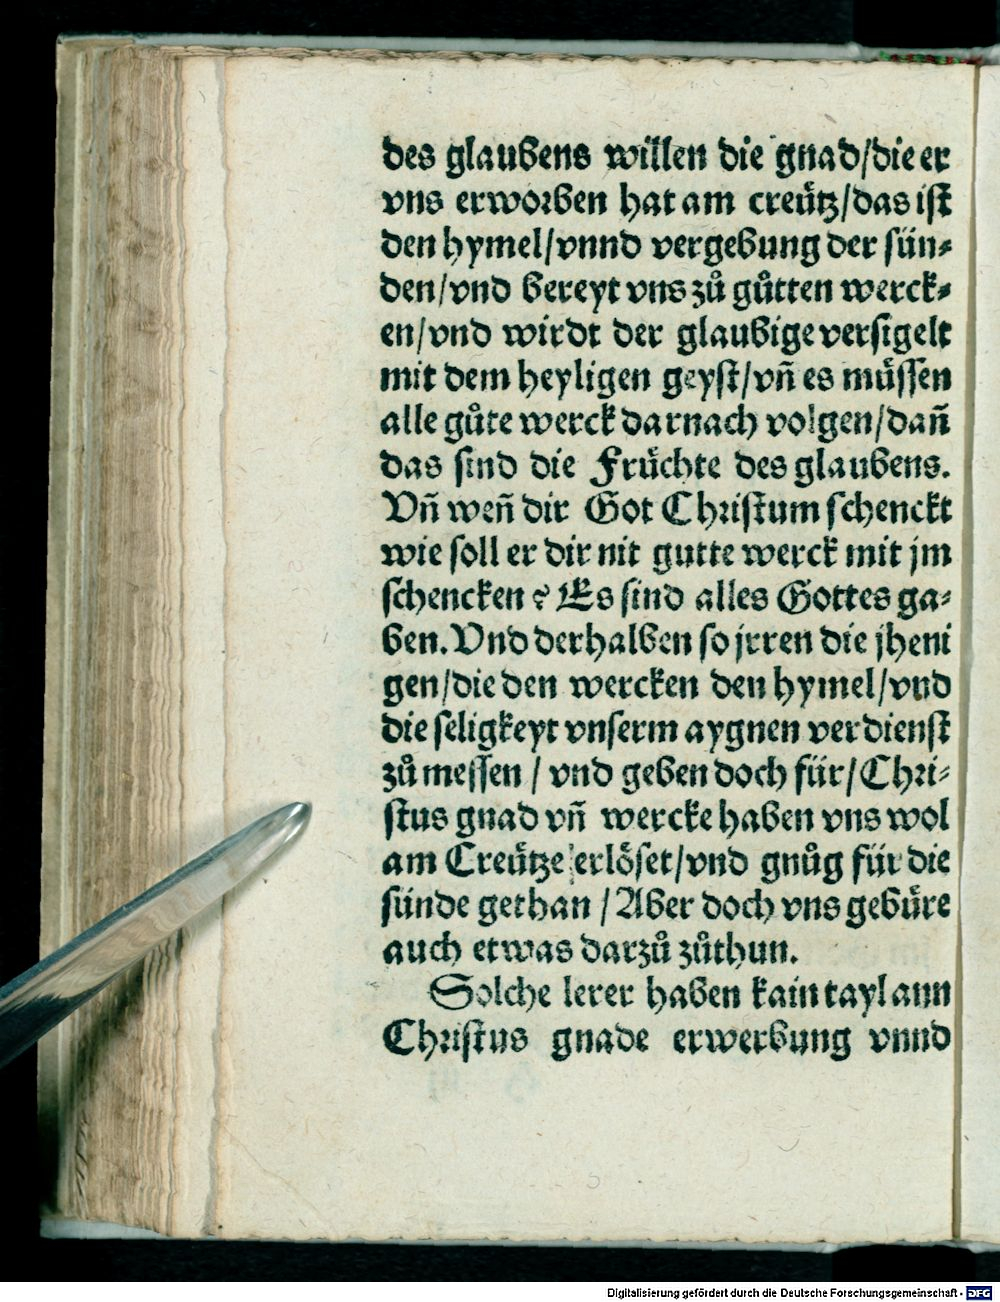 des glaubens willen die gnad/die er
vns erworben hat am creütz/das ist
den hymel/vnnd vergebung der sün⸗
den/vnd bereyt vns zů gůtten werck⸗
en/vnd wirdt der glaubige versigelt
mit dem heyligen geyst/vñ es müssen
alle gůte werck darnach volgen/dañ
das sind die Früchte des glaubens.
Vñ weñ dir Got Christum schenckt
wie soll er dir nit gutte werck mit jm
schencken? Es sind alles Gottes ga⸗
ben. Vnd derhalben so jrren die jheni
gen/die den wercken den hymel/vnd
die seligkeyt vnserm aygnen verdienst
zů messen / vnd geben doch für/Chri⸗
stus gnad vñ wercke haben vns wol
am Creütze erlöset/vnd gnůg für die
sünde gethan / Aber doch vns gebüre
auch etwas darzů zůthun.
Solche lerer haben kain tayl ann
Christus gnade erwerbung vnnd
Digitalisierung gefördert durch die Deutsche Forschungsgemeinschaft - DFG